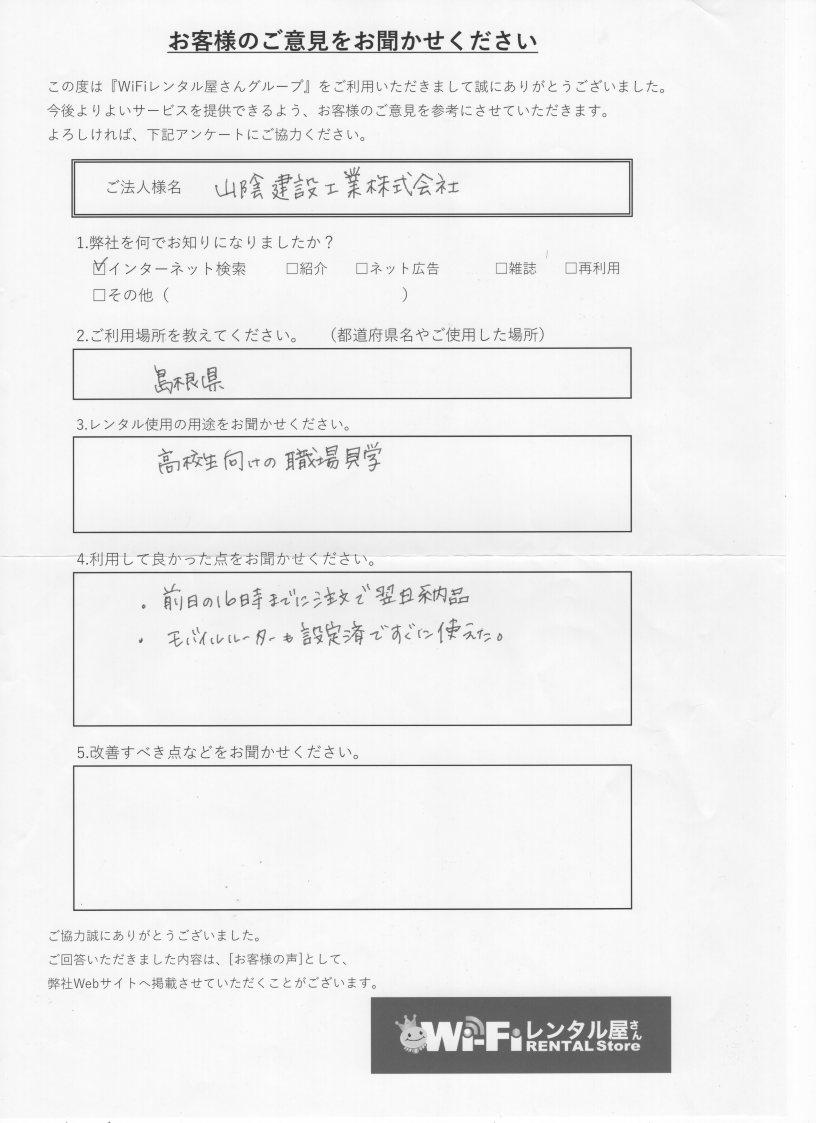 お客様のご意見をお聞かせください
この度は『WiFiレンタル屋さんグループ』をご利用いただきまして誠にありがとうございました。
今後よりよいサービスを提供できるよう、お客様のご意見を参考にさせていただきます。
よろしければ、下記アンケートにご協力ください。
ご法人様名 山陰建設工業株式会社
1.弊社を何でお知りになりましたか？
☑インターネット検索 □紹介 □ネット広告 □雑誌 □再利用
□その他（ ）
2.ご利用場所を教えてください。 （都道府県名やご使用した場所）
島根県
3.レンタル使用の用途をお聞かせください。
高校生向けの職場見学
4.利用して良かった点をお聞かせください。
・前日の16時までに注文で翌日納品
・モバイルルーターも設定済ですぐに使えた。
5.改善すべき点などをお聞かせください。
ご協力誠にありがとうございました。
ご回答いただきました内容は、[お客様の声]として、
弊社Webサイトへ掲載させていただくことがございます。
Wi-Fiレンタル屋さん
RENTAL Store